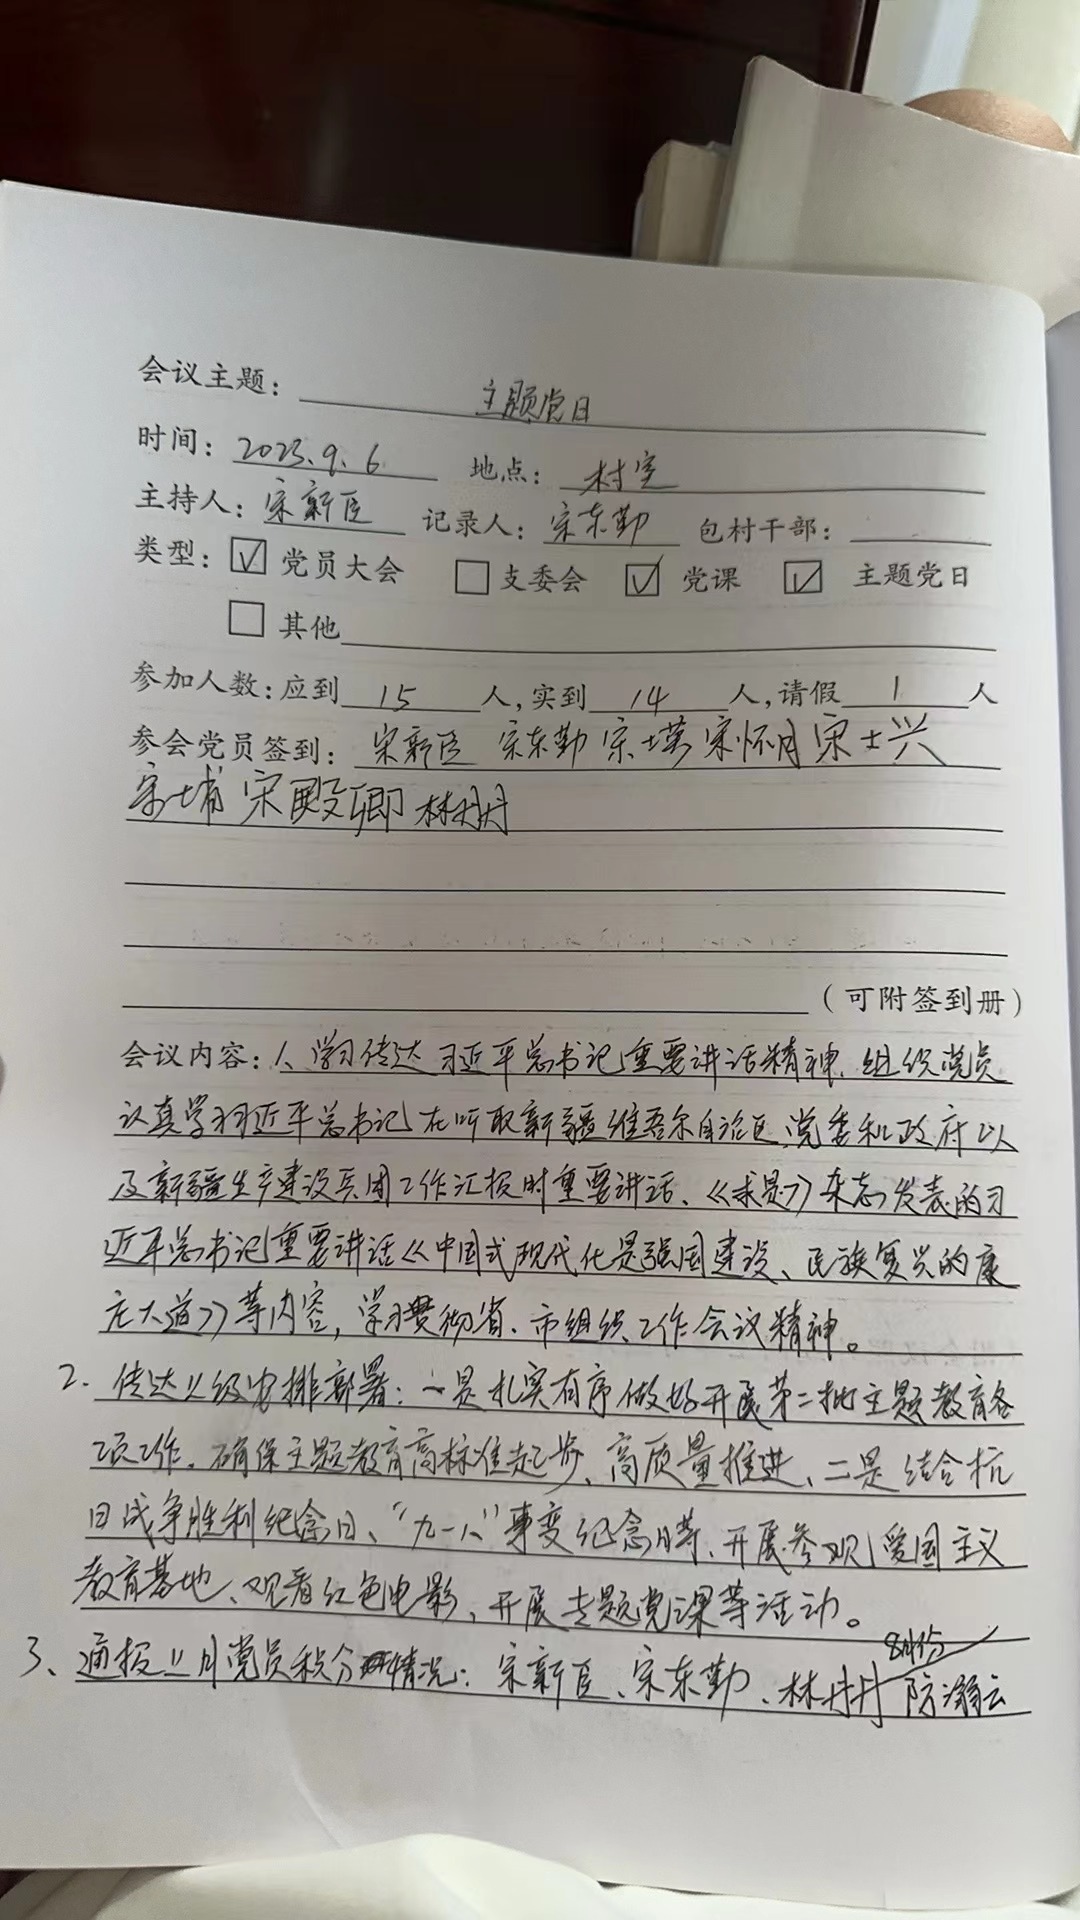 会议主题：主题党日
时间：2023.9.6 地点：村室
主持人：宋新臣 记录人：宗东勤 包村干部：
类型：☑党员大会 □支委会 ☑党课 ☑主题党日
□其他
参加人数：应到15人，实到14人，请假1人
参会党员签到：宋新臣 宗东勤 宗士英 宋怀月 宋士兴
宋殿卿 林丹丹
（可附签到册）
会议内容：1、学习传达习近平总书记重要讲话精神、组织党员
认真学习习近平总书记在听取新疆维吾尔自治区党委和政府以
及新疆生产建设兵团工作汇报时重要讲话、《求是》杂志发表的习
近平总书记重要讲话《中国式现代化是强国建设、民族复兴的康
庄大道》等内容，学习贯彻省、市组织工作会议精神。
2、传达上级安排部署：一是扎实有序做好开展第二批主题教育各
项工作。确保主题教育高标准起步、高质量推进、二是结合抗
日战争胜利纪念日、“九一八”事变纪念日等、开展参观爱国主义
教育基地、观看红色电影、开展专题党课等活动。
8月份
3、通报上月党员积分情况：宋新臣、宋东勤、林丹丹